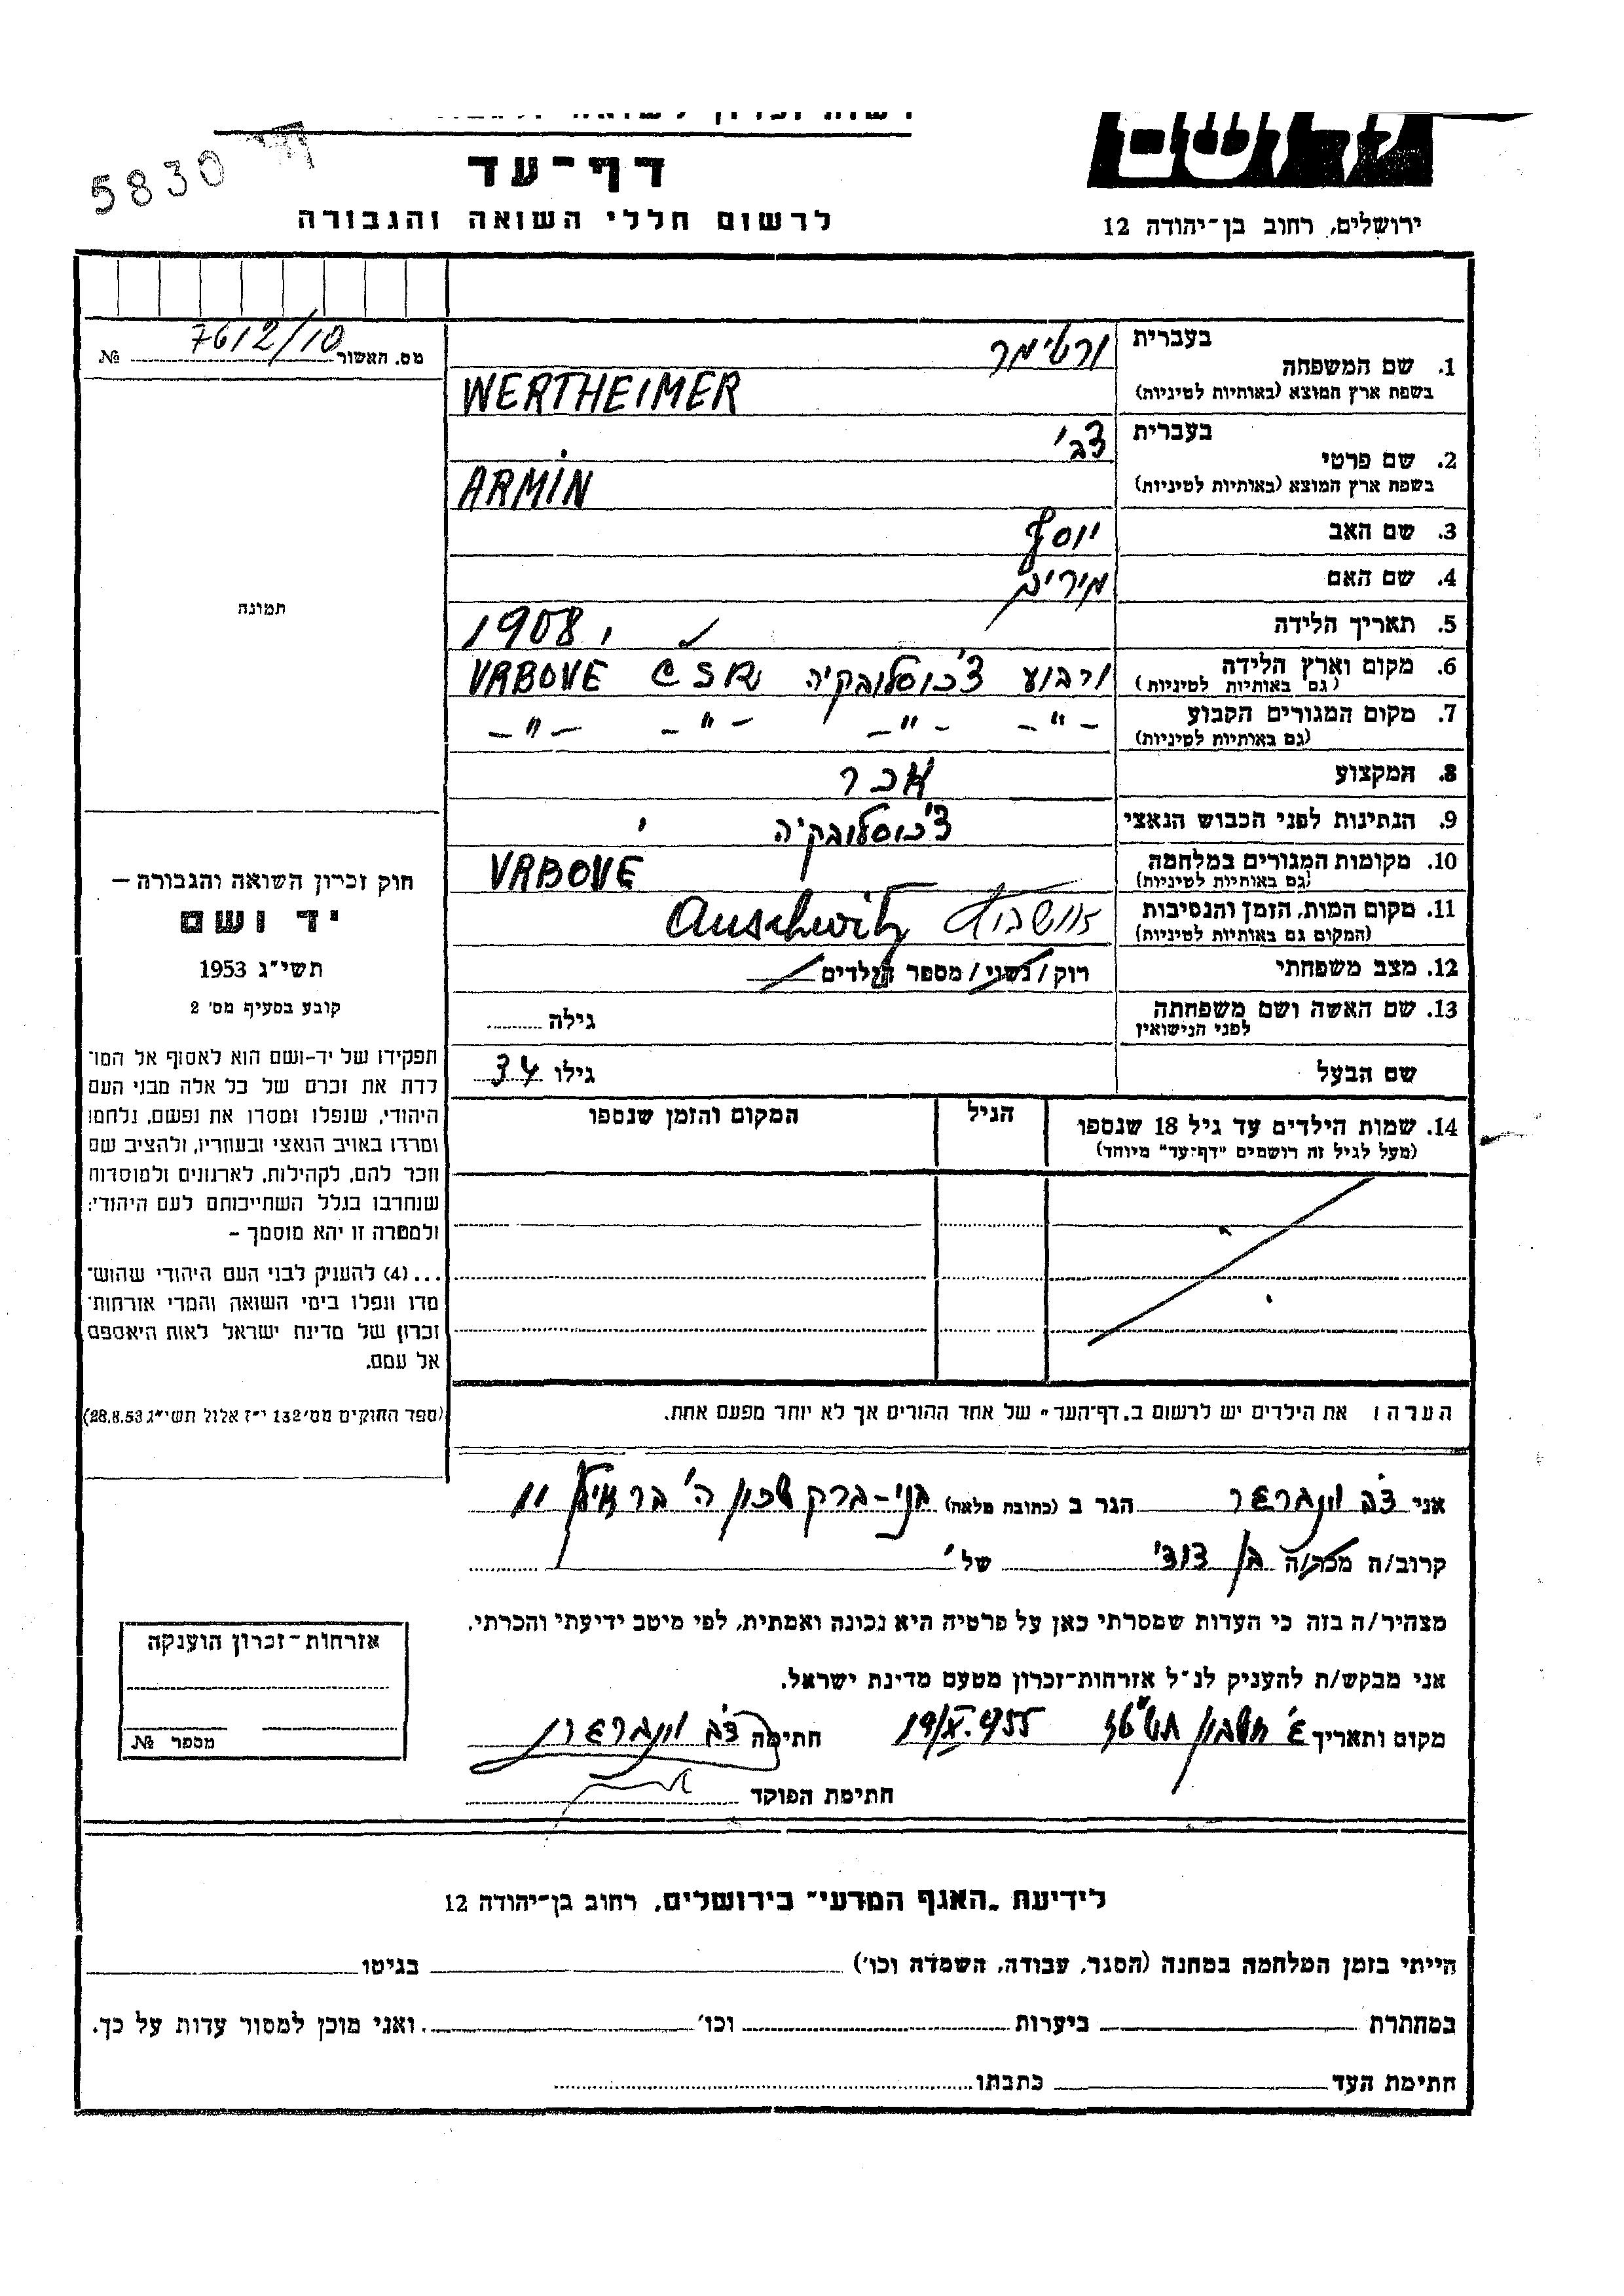 5830
דף-עד
לרשום חללי השואה והגבורה
ירושלים, רחוב בן-יהודה 12
מס. האשור 7612/10 №
1. שם המשפחה
בעברית ורטימר
בשפת ארץ המוצא (באותיות לטיניות) WERTHEIMER
2. שם פרטי
בעברית צבי
בשפת ארץ המוצא (באותיות לטיניות) ARMIN
3. שם האב יוסף
4. שם האם מירים
5. תאריך הלידה 1908
6. מקום וארץ הלידה ורבוע צ'כוסלובקיה CSR VRBOVE
(גם באותיות לטיניות)
7. מקום המגורים הקבוע -"- -"- -"- -"-
(גם באותיות לטיניות)
8. המקצוע אכר
9. הנתינות לפני הכבוש הנאצי צ'כוסלובקיה
10. מקומות המגורים במלחמה VRBOVE
(גם באותיות לטיניות)
11. מקום המות, הזמן והנסיבות אושביץ Auschwitz
(המקום גם באותיות לטיניות)
12. מצב משפחתי רוק/נשוי/מספר הילדים
13. שם האשה ושם משפחתה
לפני הנישואין
גילה
שם הבעל גילו 34
14. שמות הילדים עד גיל 18 שנספו
(מעל לגיל זה רושמים "דף-עד" מיוחד)
הגיל
המקום והזמן שנספו
הערה: את הילדים יש לרשום ב"דף-העד" של אחד ההורים אך לא יותר מפעם אחת.
תמונה
חוק זכרון השואה והגבורה —
יד ושם
תשי"ג 1953
קובע בסעיף מס' 2
תפקידו של יד-ושם הוא לאסוף אל המו־
לדת את זכרם של כל אלה מבני העם
היהודי, שנפלו ומסרו את נפשם, נלחמו
ומרדו באויב הנאצי ובעוזריו, ולהציב שם
וזכר להם, לקהילות, לארגונים ולמוסדות
שנחרבו בגלל השתייכותם לעם היהודי;
ולמטרה זו יהא מוסמך –
...(4) להעניק לבני העם היהודי שהוש־
מדו ונפלו בימי השואה והמרי אזרחות־
זכרון של מדינת ישראל לאות היאספם
אל עמם.
(ספר החוקים מס' 132 י"ז אלול תשי"ג 28.8.53)
אני צבי הגר ב (כתובת מלאה) בני-ברק שכון ה' בר אילן 11
קרוב/ה מכר/ה בן דודי של
מצהיר/ה בזה כי העדות שמסרתי כאן על פרטיה היא נכונה ואמתית, לפי מיטב ידיעתי והכרתי.
אני מבקש/ת להעניק לנ"ל אזרחות-זכרון מטעם מדינת ישראל.
מקום ותאריך חשבון תשט"ז 19/X.955 חתימה צבי
חתימת הפוקד
אזרחות-זכרון הוענקה
מספר №
לידיעת "האגף המדעי" בירושלים, רחוב בן-יהודה 12
הייתי בזמן המלחמה במחנה (הסגר, עבודה, השמדה וכו') בגיטו
במחתרת ביערות וכו' ואני מוכן למסור עדות על כך.
חתימת העד כתבתו